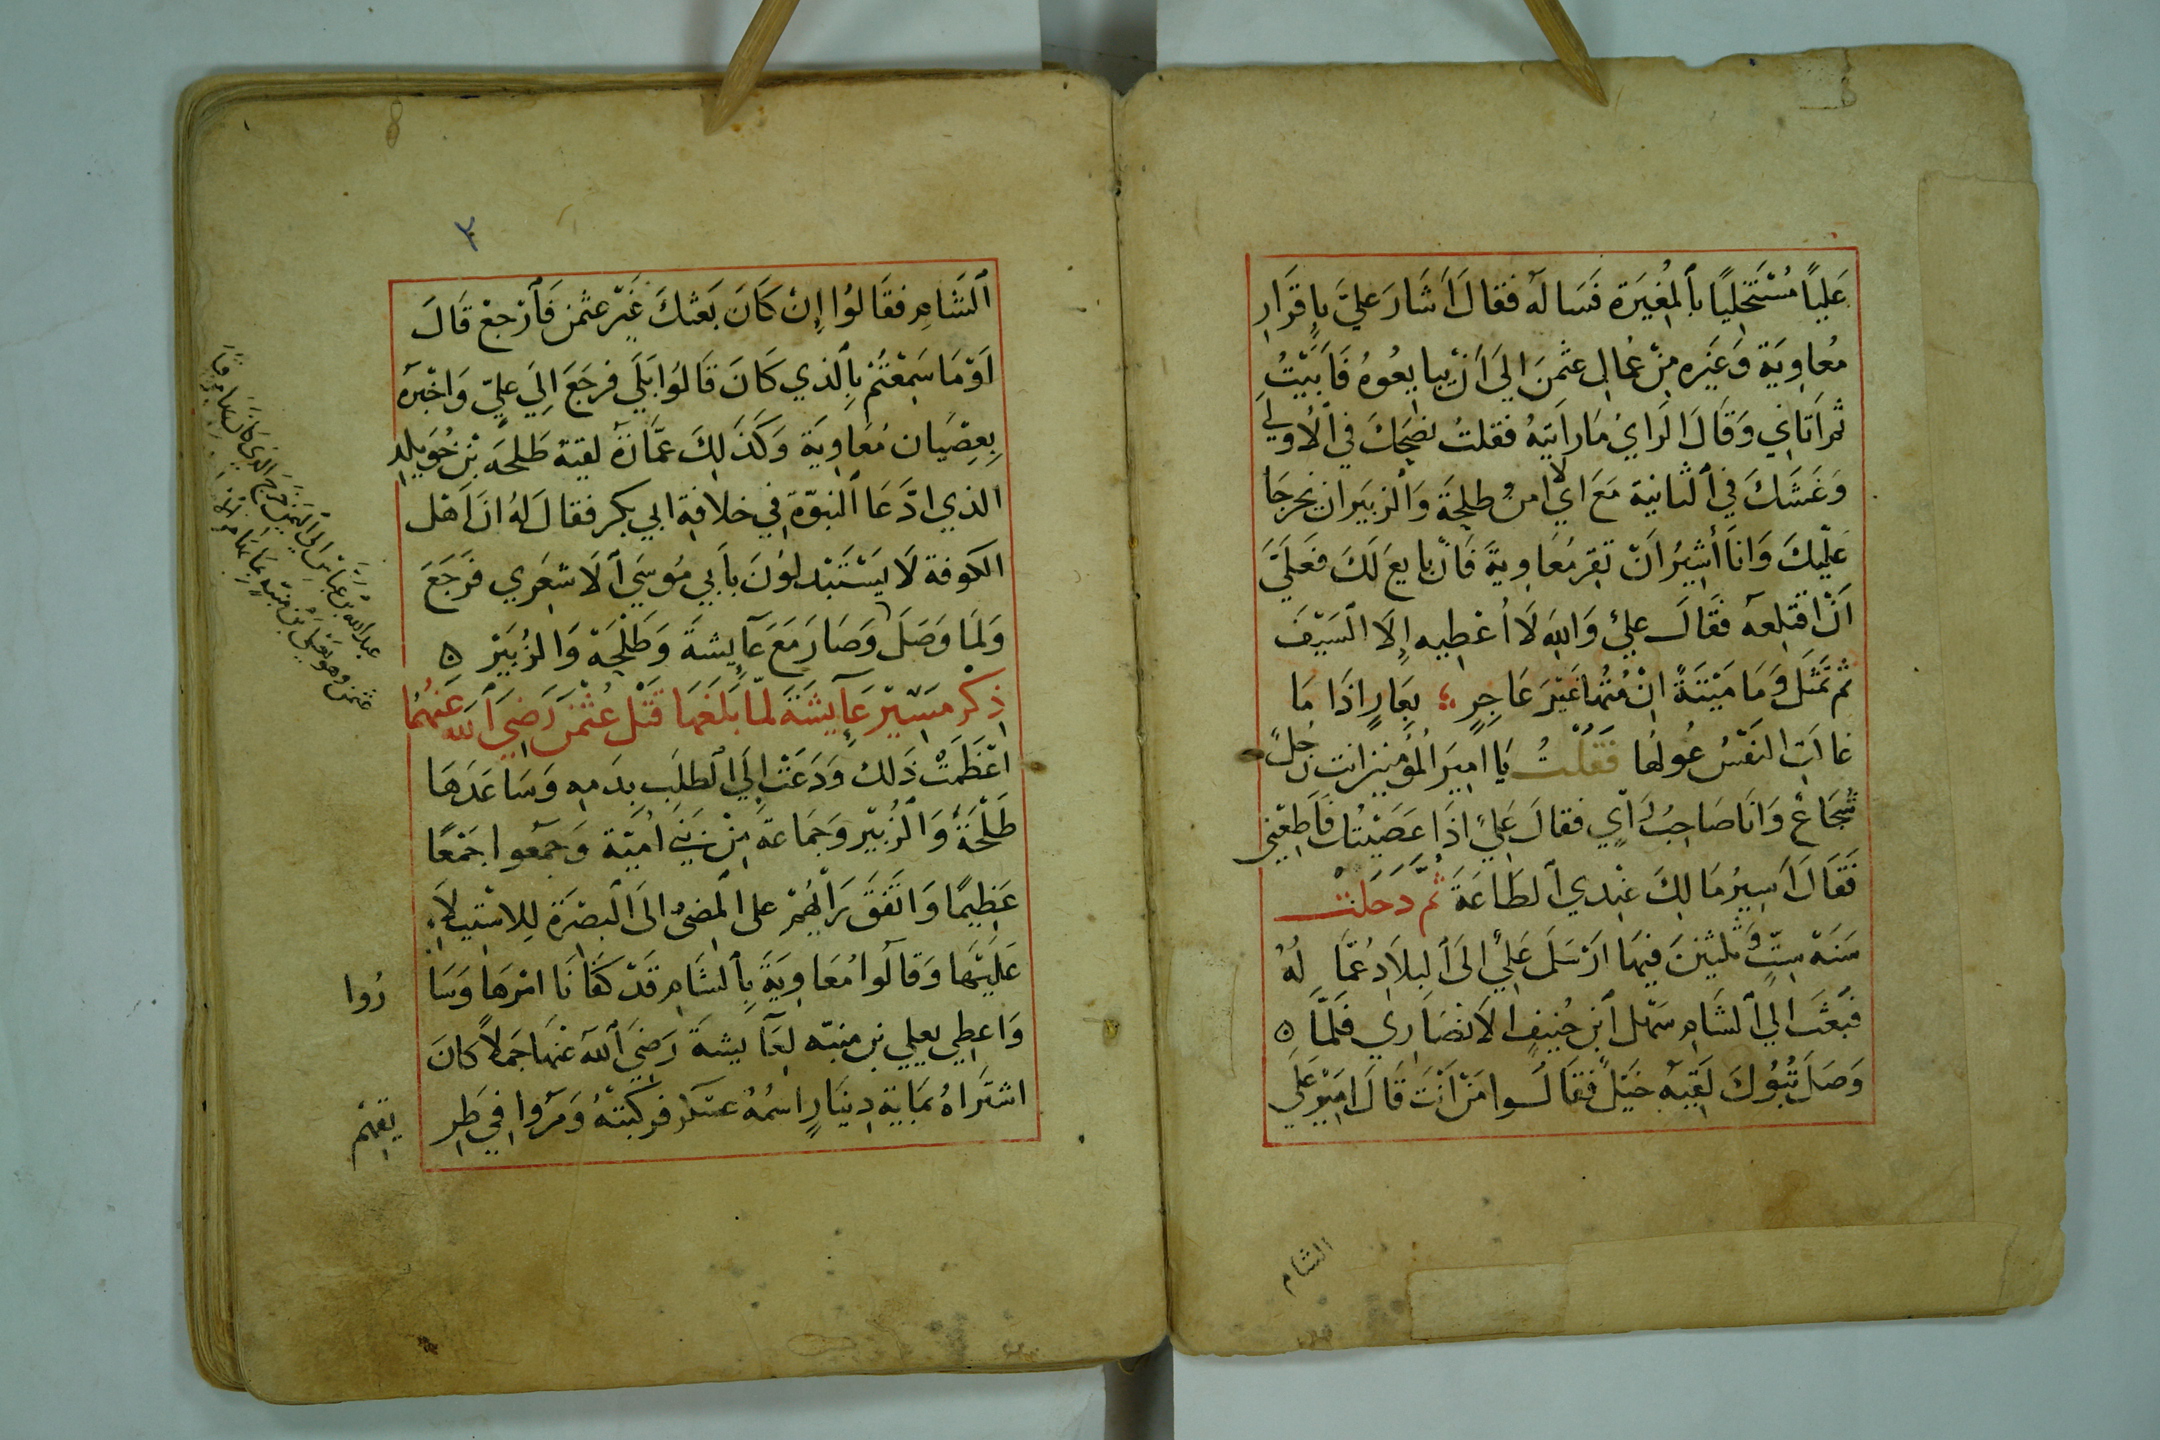 عَلِيًّا مُسْتَخْلِيًا بِٱلْمُغِيرَةِ فَسَالَهُ فَقَالَ أَشَارَ عَلَيَّ بِإِقْرَارِ
مُعَاوِيَةَ وَغَيْرِهِ مِنْ عُمَّالِ عُثْمَنَ إِلَى أَنْ يُبَايِعُوهُ فَأَبَيْتُ
ثُمَّ أَتَانِي وَقَالَ الرَّايُ مَا رَايْتَهُ فَقُلْتُ نَصَحَكَ فِي ٱلْأُولَى
وَغَشَّكَ فِي ٱلثَّانِيَةِ مَعَ أَنِّي لَا امَنُ طَلْحَةَ وَٱلزُّبَيْرَ ان يَخْرُجَا
عَلَيْكَ وَانَا أُشِيرُ أَنْ تُقِرَّ مُعَاوِيَةَ فَإِنْ بَايَعَ لَكَ فَعَلَيَّ
أَنْ اقْتَلِعَهُ فَقَالَ عَلِيٌّ وَاللَّهِ لَا أُعْطِيهِ إِلَّا السَّيْفَ
ثُمَّ تَمَثَّلَ وَمَا مَيْتَةٌ انْ مُتُّهَا غَيْرَ عَاجِزٍ ؛ بِعَارٍ إِذَا مَا
غَالَتِ النَّفْسُ غُولُهَا فَقُلْتُ يَا امِيرَ الْمُؤْمِنِينَ انت رَجُلٌ
شُجَاعٌ وَانَا صَاحِبُ رَأْيٍ فَقَالَ عَلِيٌّ إِذَا عَصَيْتُكَ فَأَطِعْنِي
فَقَالَ أَيْسَرُ مَا لَكَ عِنْدِي ٱلطَّاعَةَ ثُمَّ دَخَلَتْ
سَنَةُ سِتٍّ وَثَلَثِينَ فِيهَا ارْسَلَ عَلِيٌّ إِلَى ٱلْبِلَادِ عُمَّالَهُ
فَبَعَثَ إِلَى ٱلشَّامِ سَهْلَ ٱبْنَ حُنَيْفٍ الْأَنْصَارِي فَلَمَّا ٥
وَصَلَ تَبُوكَ لَقِيَهُ خَيْلٌ فَقَالُوا مَنْ أَنْتَ قَالَ امِيرٌ عَلَى
الشام
٣
ٱلشَّامِ فَقَالُوا إِنْ كَانَ بَعَثَكَ غَيْرُ عُثْمَنَ فَٱرْجِعْ قَالَ
اوَمَا سَمِعْتُمْ بِٱلَّذِي كَانَ قَالُوا بَلَى فَرَجَعَ إِلَى عَلِيٍّ وَاخْبَرَهُ
بِعِصْيَانِ مُعَاوِيَةَ وَكَذَلِكَ عُمَارَةُ لَقِيَهُ طَلْحَةُ بْنُ خُوَيْلِدٍ
الَّذِي ادَّعَا ٱلنُّبُوَّةَ فِي خِلَافَةِ ابِي بَكْرٍ فَقَالَ لَهُ انَّ أَهْلَ
الكُوفَةِ لَا يَسْتَبْدِلُونَ بِأَبِي مُوسَى ٱلْأَشْعَرِي فَرَجَعَ
وَلَمَّا وَصَلَ وَصَارَ مَعَ عَآئِشَةَ وَطَلْحَةَ وَالزُّبَيْرِ ٥
ذِكْرُ مَسِيرِ عَآئِشَةَ لَمَّا بَلَغَهَا قَتْلُ عُثْمَنَ رَضِيَ ٱللَّهُ عَنْهُمَا
اعْظَمَتْ ذَلِكَ وَدَعَتْ إِلَى ٱلطَّلَبِ بِدَمِهِ وَسَاعَدَهَا
طَلْحَةُ وَٱلزُّبَيْرُ وَجَمَاعَةٌ مِنْ بَنِي أُمَيَّةَ وَجَمَعُوا جَمْعًا
عَظِيمًا وَاتَّفَقَ رَأْيُهُمْ عَلَى الْمُضِيِّ إِلَى ٱلْبَصْرَةِ لِلِاسْتِيلَاءِ
عَلَيْهَا وَقَالُوا مُعَاوِيَةُ بِٱلشَّامِ قَدْ كَفَانَا امْرَهَا وَسَا
رُوا
وَاعْطَى يَعْلِي بن منبّه لِعَآئِشَةَ رَضِيَ ٱللَّهُ عَنْهَا جَمَلًا كَانَ
اشْتَرَاهُ بِمَايَةِ دِينَارٍ اسْمُهُ عَسْكَر فَرَكِبَتْهُ وَمَرُّوا فِي طَرِ
يقهم
عبد الله بن عباس إلى اليمن خرج الذي كان بها من قبل
عثمن وهو يعلى بن منبّه بما بها من